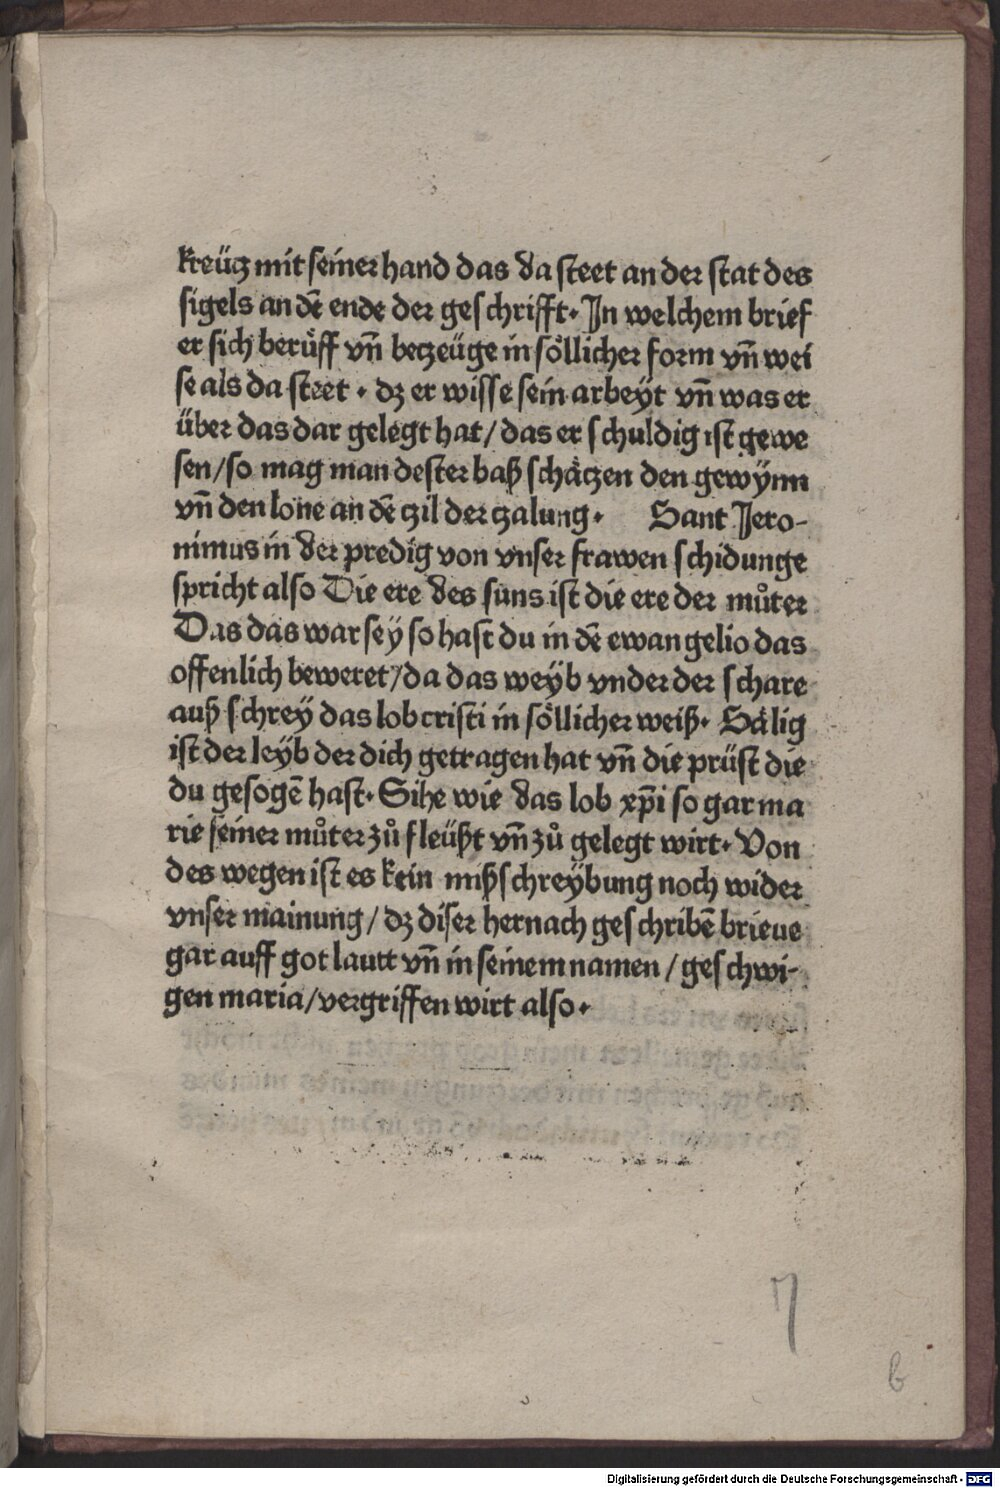 kreücz mit seiner hand das da steet an der stat des
sigels an dē ende der geschrifft. In welchem brief
er sich berüff vn̄ beczeüge in söllicher form vn̄ wei
se als da steet. dz er wisse sein arbeyt vn̄ was er
über das dar gelegt hat/das er schuldig ist gewe
sen/so mag man dester baß schäczen den gewÿnn
vn̄ den lone an dē czil der czalung. Sant Jero-
nimus in der predig von vnser frawen schidunge
spricht also Die ere des suns ist die ere der můter
Das das war seÿ so hast du in dē ewangelio das
offenlich beweret/da das weÿb vnder der schare
auß schrey das lob cristi in söllicher weiß. Sälig
ist der leÿb der dich getragen hat vn̄ die prüst die
du gesogē hast. Sihe wie das lob xp̄i so gar ma
rie seiner můter zů fleüßt vn̄ zů gelegt wirt. Von
des wegen ist es kein mißschreÿbung noch wider
vnser mainung/dz diser hernach geschribē brieue
gar auff got lautt vn̄ in seinem namen/geschwi-
gen maria/vergriffen wirt also.
7
6
Digitalisierung gefördert durch die Deutsche Forschungsgemeinschaft - DFG